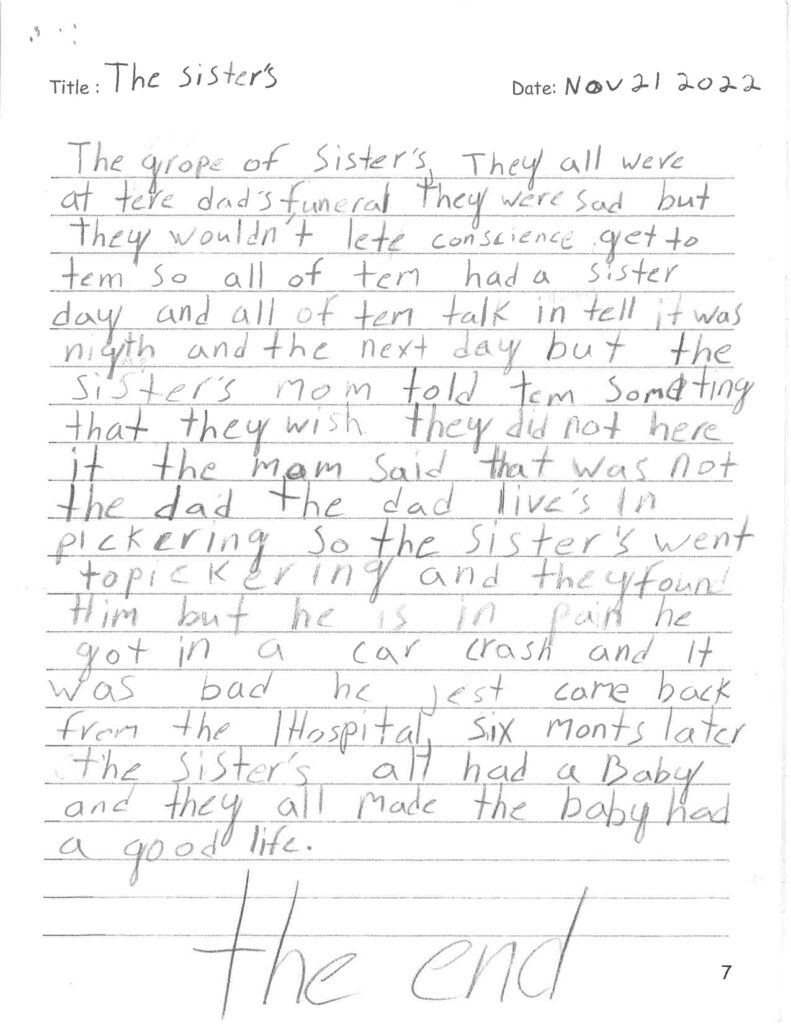 Title : The sister's
Date: Nov 21 2022
The grope of Sister's. They all were
at tere dad's funeral They were sad but
they wouldn't lete conscience get to
tem so all of tem had a sister
day and all of tem talk in tell it was
nigth and the next day but the
sister's mom told tem someting
that they wish they did not here
it the mom said that was not
the dad the dad live's in
pickering so the sister's went
to pickering and they found
Him but he is in pain he
got in a car crash and it
was bad he jest came back
from the Hospital, six monts later
the sister's all had a Baby
and they all made the baby had
a good life.
the end
7